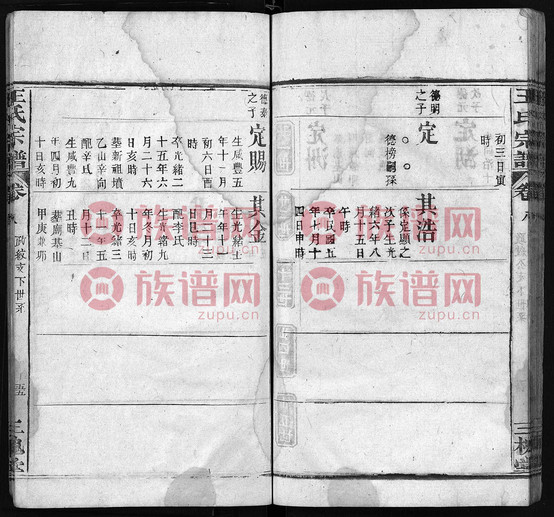 王氏宗譜
卷
八
三槐堂
初三日寅
時
德明
之子
定
德榜
其浩
定顯之
次子生光
緒六年八
月廿五日
午時
卒民國五
年七月十
四日申時
德泰
之子
定賜
生咸豐五
年十一月
初六日酉
時
卒光緒二
十五年六
月二十六
日亥時
墓新祖墳
乙山辛向
配辛氏
生咸豐九
年四月初
十日亥時
其金
生光緒十
三日
日巳時
配李氏
生光緒九
年冬月初
十日亥時
卒光緒三
十年五
月十三
日丑時
甲庚兼卯
王氏宗譜
卷
八
敦敘支下世系
五
三槐堂
族谱网
zupu.cn
族谱网
zupu.cn
族谱网
zupu.cn
族谱网
zupu.cn